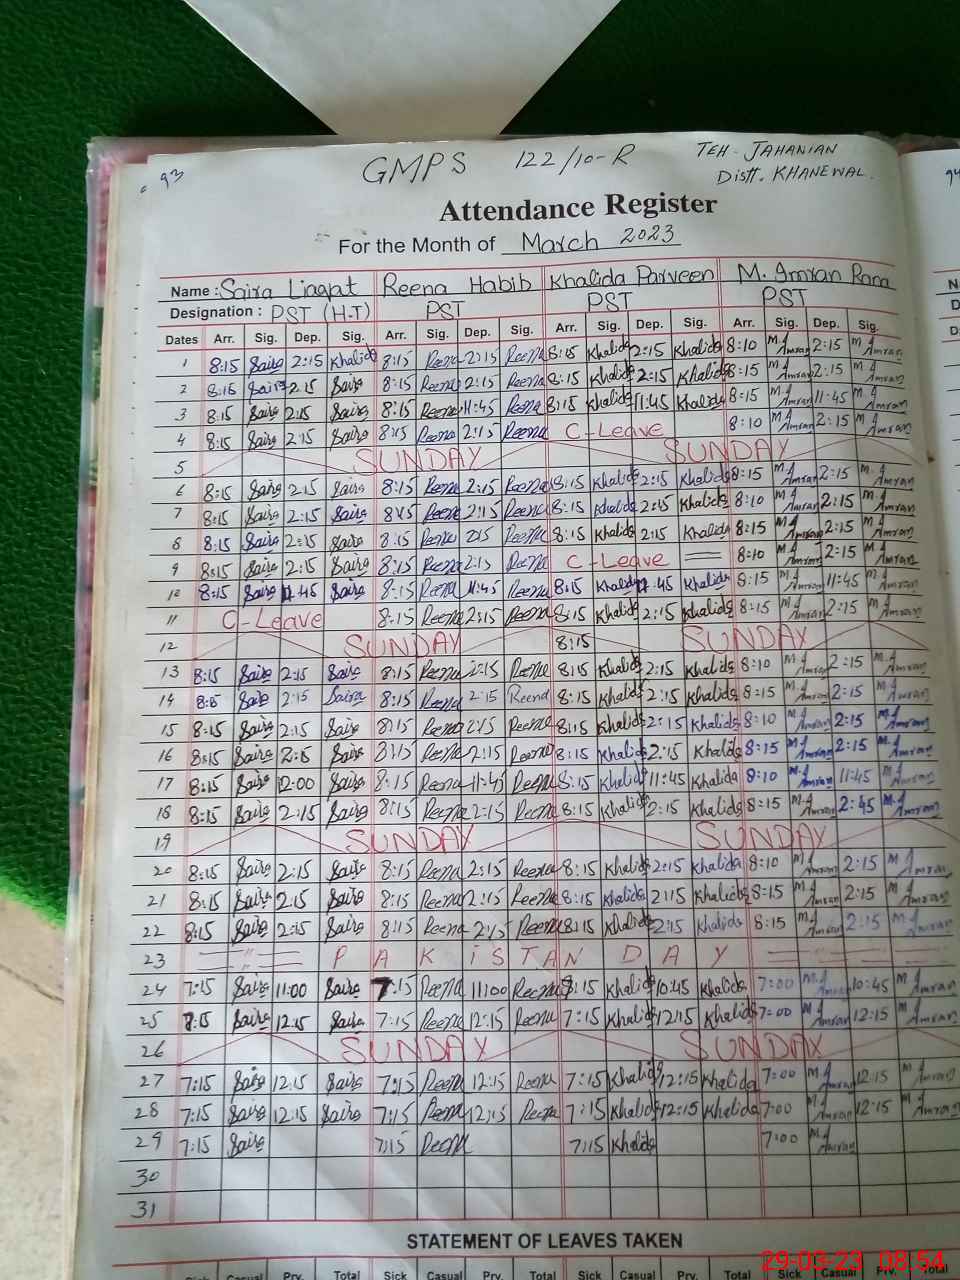 93
GMPS 122/10-R TEH. JAHANIAN
Distt. KHANEWAL.
94
Attendance Register
For the Month of March 2023
Name : Saira Liaqat Reena Habib Khalida Parveen M. Amran Rana
Designation : PST (H-T) PST PST PST
Dates Arr. Sig. Dep. Sig. Arr. Sig. Dep. Sig. Arr. Sig. Dep. Sig. Arr. Sig. Dep. Sig.
1 8:15 Saira 2:15 Khalida 8:15 Reena 2:15 Reena 8:15 Khalida 2:15 Khalida 8:10 M. Amran 2:15 M. Amran
2 8:15 Saira 2:15 Saira 8:15 Reena 2:15 Reena 8:15 Khalida 2:15 Khalida 8:15 M. Amran 2:15 M. Amran
3 8:15 Saira 2:15 Saira 8:15 Reena 11:45 Reena 8:15 Khalida 11:45 Khalida 8:15 M. Amran 11:45 M. Amran
4 8:15 Saira 2:15 Saira 8:15 Reena 2:15 Reena C-Leave 8:10 M. Amran 2:15 M. Amran
5 SUNDAY SUNDAY
6 8:15 Saira 2:15 Saira 8:15 Reena 2:15 Reena 8:15 Khalida 2:15 Khalida 8:15 M. Amran 2:15 M. Amran
7 8:15 Saira 2:15 Saira 8:15 Reena 2:15 Reena 8:15 Khalida 2:15 Khalida 8:10 M. Amran 2:15 M. Amran
8 8:15 Saira 2:15 Saira 8:15 Reena 2:15 Reena 8:15 Khalida 2:15 Khalida 8:15 M. Amran 2:15 M. Amran
9 8:15 Saira 2:15 Saira 8:15 Reena 2:15 Reena C-Leave 8:10 M. Amran 2:15 M. Amran
10 8:15 Saira 11:45 Saira 8:15 Reena 11:45 Reena 8:15 Khalida 11:45 Khalida 8:15 M. Amran 11:45 M. Amran
11 C-Leave 8:15 Reena 2:15 Reena 8:15 Khalida 2:15 Khalida 8:15 M. Amran 2:15 M. Amran
12 SUNDAY 8:15 SUNDAY
13 8:15 Saira 2:15 Saira 8:15 Reena 2:15 Reena 8:15 Khalida 2:15 Khalida 8:10 M. Amran 2:15 M. Amran
14 8:15 Saira 2:15 Saira 8:15 Reena 2:15 Reena 8:15 Khalida 2:15 Khalida 8:15 M. Amran 2:15 M. Amran
15 8:15 Saira 2:15 Saira 8:15 Reena 2:15 Reena 8:15 Khalida 2:15 Khalida 8:10 M. Amran 2:15 M. Amran
16 8:15 Saira 2:15 Saira 8:15 Reena 2:15 Reena 8:15 Khalida 2:15 Khalida 8:15 M. Amran 2:15 M. Amran
17 8:15 Saira 12:00 Saira 8:15 Reena 11:45 Reena 8:15 Khalida 11:45 Khalida 8:10 M. Amran 11:45 M. Amran
18 8:15 Saira 2:15 Saira 8:15 Reena 2:15 Reena 8:15 Khalida 2:15 Khalida 8:15 M. Amran 2:45 M. Amran
19 SUNDAY SUNDAY
20 8:15 Saira 2:15 Saira 8:15 Reena 2:15 Reena 8:15 Khalida 2:15 Khalida 8:10 M. Amran 2:15 M. Amran
21 8:15 Saira 2:15 Saira 8:15 Reena 2:15 Reena 8:15 Khalida 2:15 Khalida 8:15 M. Amran 2:15 M. Amran
22 8:15 Saira 2:15 Saira 8:15 Reena 2:15 Reena 8:15 Khalida 2:15 Khalida 8:15 M. Amran 2:15 M. Amran
23 PAKiSTAN DAY
24 7:15 Saira 11:00 Saira 7:15 Reena 11:00 Reena 8:15 Khalida 10:45 Khalida 7:00 M. Amran 10:45 M. Amran
25 8:15 Saira 12:15 Saira 7:15 Reena 12:15 Reena 7:15 Khalida 12:15 Khalida 7:00 M. Amran 12:15 M. Amran
26 SUNDAY SUNDAY
27 7:15 Saira 12:15 Saira 7:15 Reena 12:15 Reena 7:15 Khalida 12:15 Khalida 7:00 M. Amran 12:15 M. Amran
28 7:15 Saira 12:15 Saira 7:15 Reena 12:15 Reena 7:15 Khalida 12:15 Khalida 7:00 M. Amran 12:15 M. Amran
29 7:15 Saira 7:15 Reena 7:15 Khalida 7:00 M. Amran
30
31
STATEMENT OF LEAVES TAKEN
Sick Casual Prv. Total Sick Casual Prv. Total Sick Casual Prv. Total Sick Casual Prv. Total
29-03-23 08:54